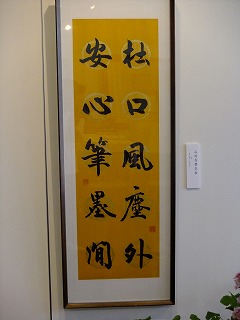 杜口風塵外
安心筆墨間